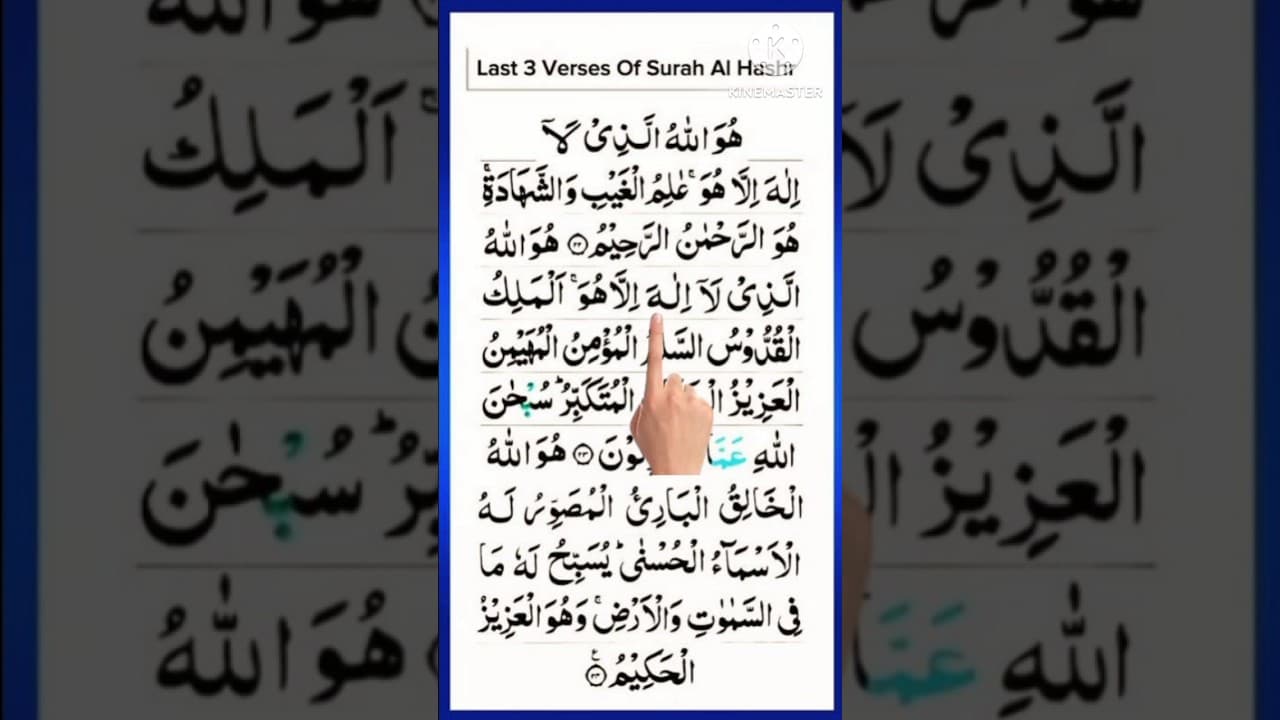 Last 3 Verses Of Surah Al Hashr
KINEMASTER
هُوَ اللّٰهُ الَّذِیْ لَاۤ
اِلٰهَ اِلَّا هُوَ ۚ عٰلِمُ الْغَیْبِ وَالشَّهَادَةِ ۚ
هُوَ الرَّحْمٰنُ الرَّحِیْمُ ۝۲۲ هُوَ اللّٰهُ
الَّذِیْ لَاۤ اِلٰهَ اِلَّا هُوَ ۚ اَلْمَلِكُ
الْقُدُّوْسُ الْمُؤْمِنُ الْمُهَیْمِنُ
الْعَزِیْزُ الْمُتَكَبِّرُ ؕ سُبْحٰنَ
اللّٰهِ عَمَّا ۝۲۳ هُوَ اللّٰهُ
الْخَالِقُ الْبَارِئُ الْمُصَوِّرُ لَهُ
الْاَسْمَآءُ الْحُسْنٰی ؕ یُسَبِّحُ لَهٗ مَا
فِی السَّمٰوٰتِ وَالْاَرْضِ ۚ وَهُوَ الْعَزِیْزُ
الْحَكِیْمُ ۝۲۴